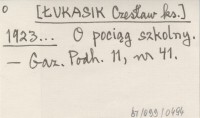 [ŁUKASIK Czesław ks.]
1923... O pociąg szkolny.
— Gaz. Podh. 11, nr 41.